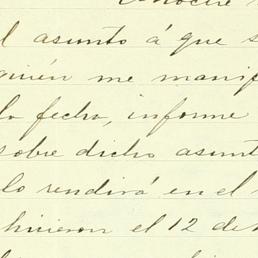 l asunto á que s
quién me manif
la fecha, informe
sobre dicho asunt
lo rendirá en el
hicieron el 12 de